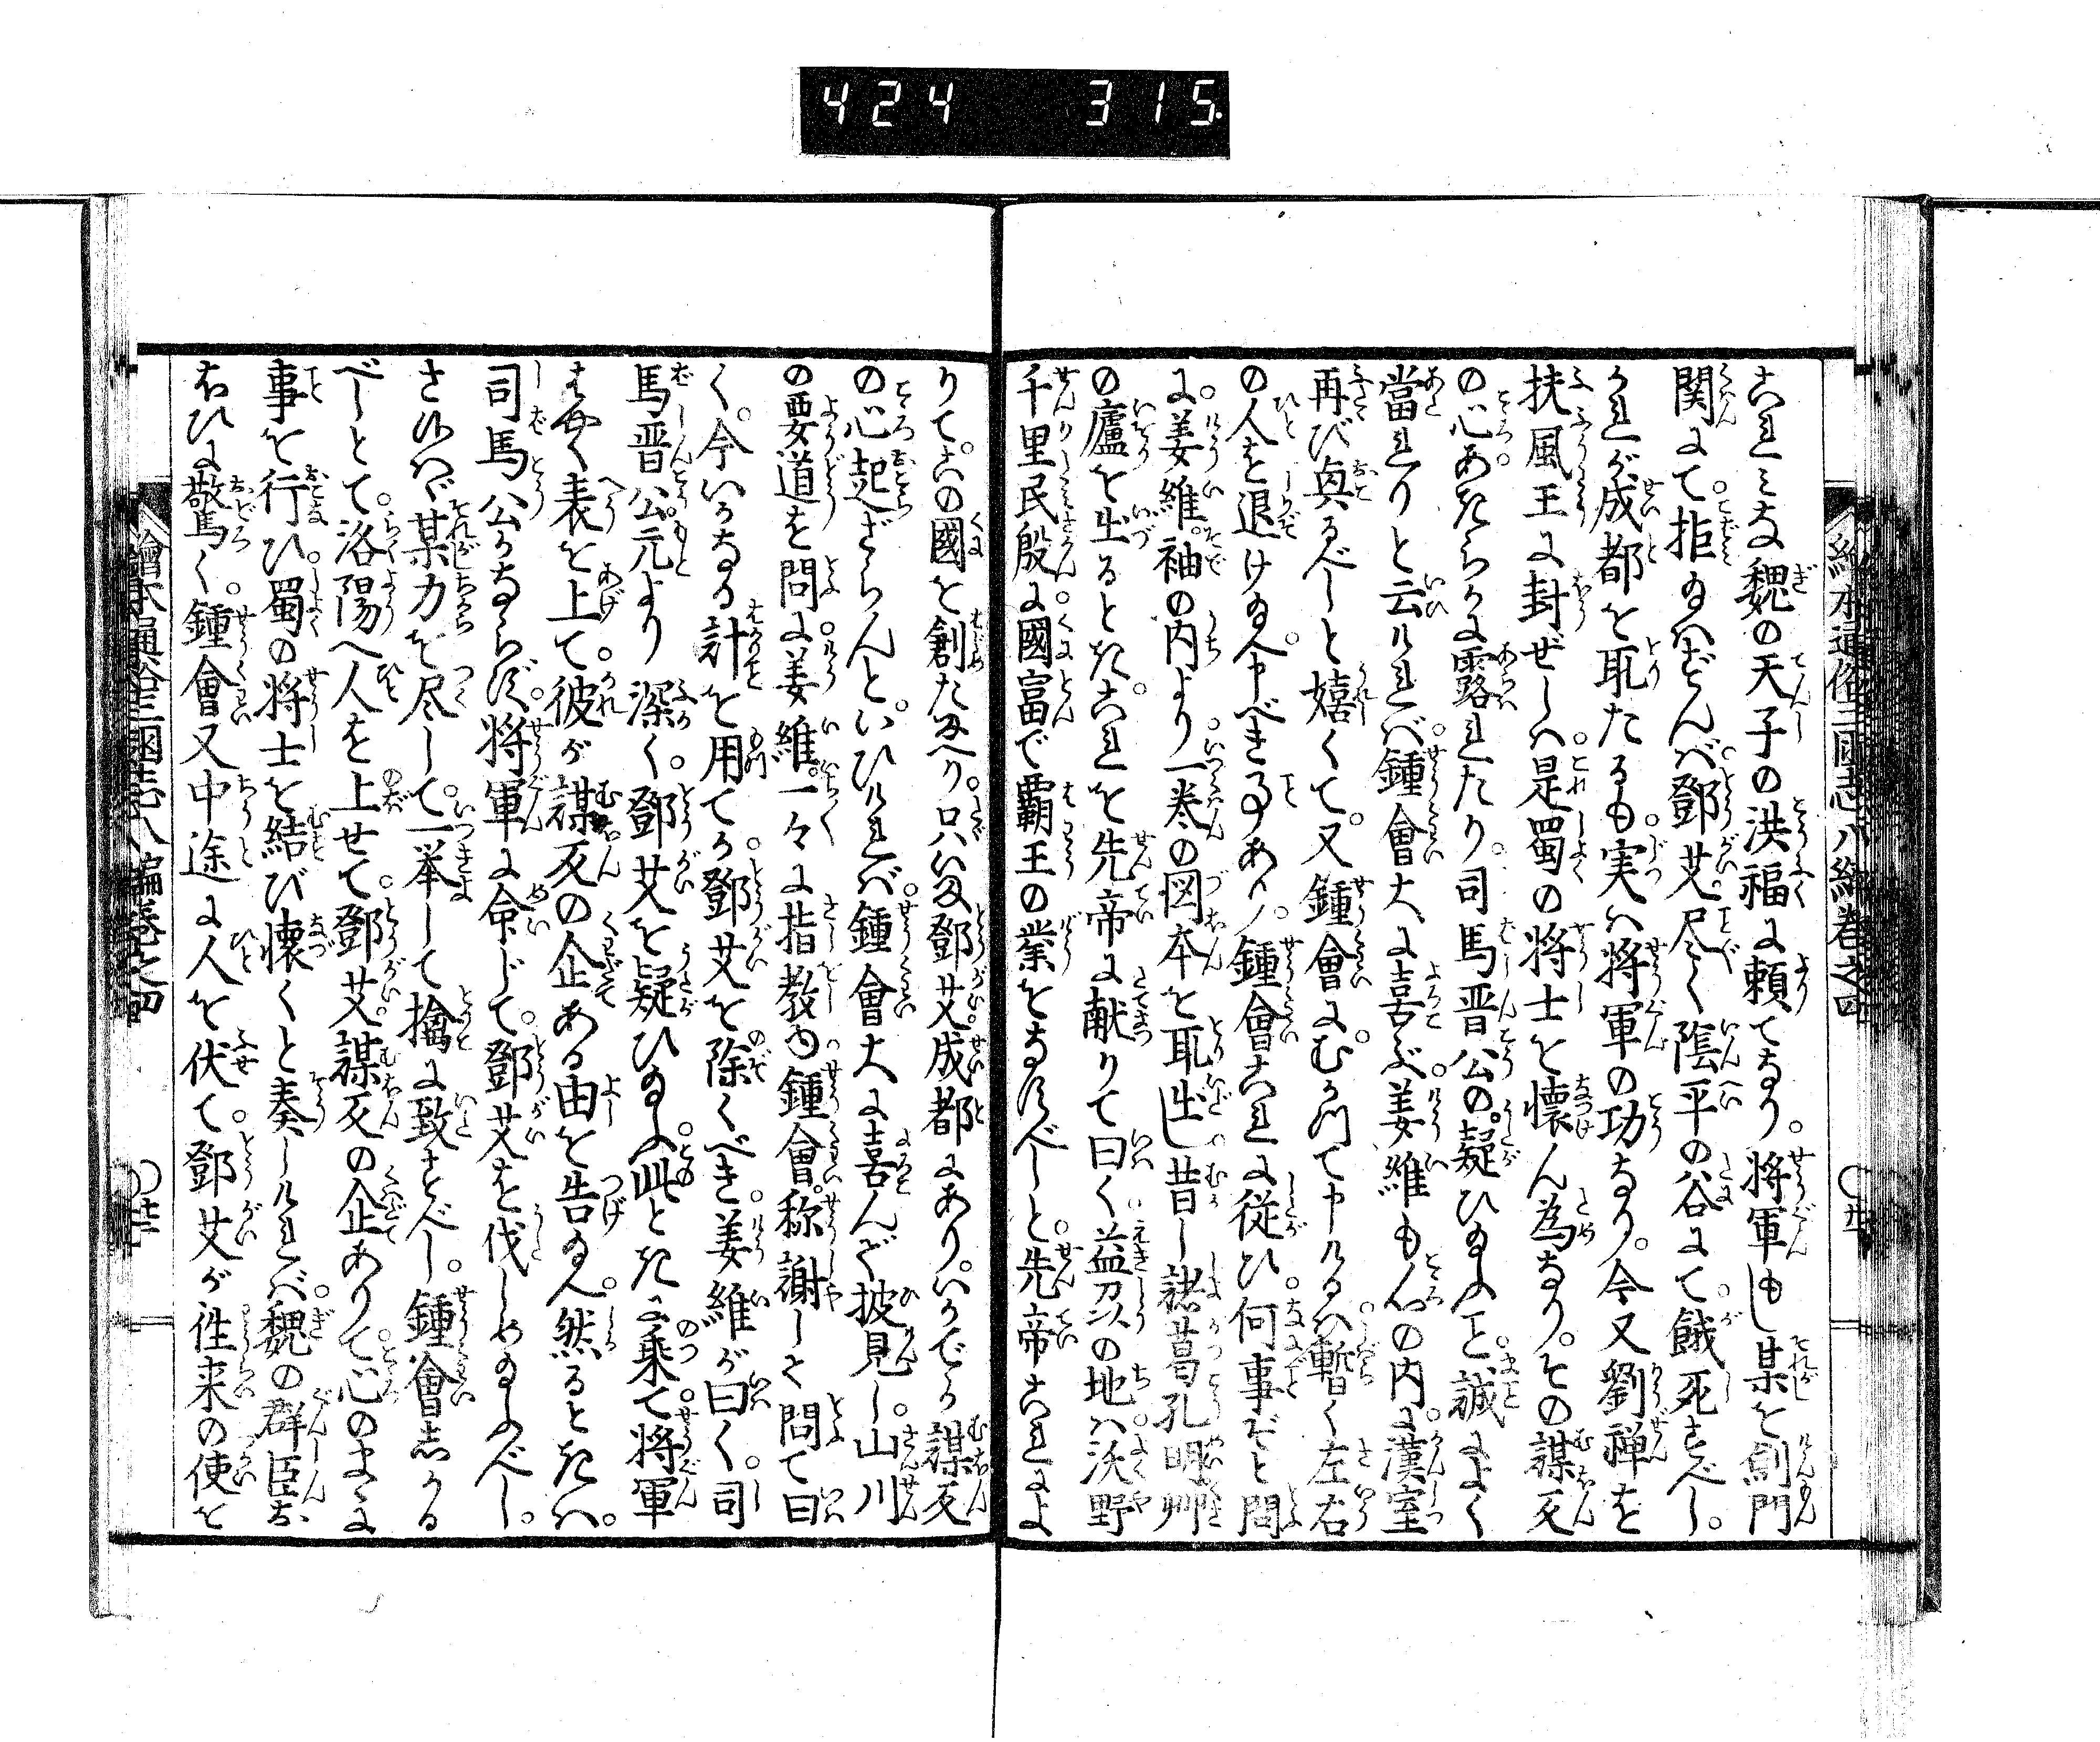 424 315
繪本通俗三國志八編卷之四
これみな魏の天子の洪福に頼てなり。将軍もし某を劍門
関にて拒ぎ給はずんば。鄧艾。尽く陰平の谷にて。餓死すべし。
かれが成都を取たるも。実は将軍の功なり。今又劉禅を
扶風王に封ぜしは。是蜀の将士を懐ん為なり。その謀反
の心。あきらかに露れたり。司馬晋公の。疑ひ給ふこと。誠によく
當れりと云ければ。鍾會大に喜ぶ。姜維も心の内に。漢室
再び興るべしと嬉くて。又鍾會にむかつて申けるは。暫く左右
の人を退け給へ。申べき事あり。鍾會これに従ひ。何事ぞと問
に。姜維。袖の内より。一巻の図本を取出し。昔し諸葛孔明艸
の廬を出るとき。これを先帝に献りて曰く。益州の地は。沃野
千里民殷に。國富で覇王の業をなすべしと。先帝これによ
りて。この國を創たまへり。只いま鄧艾。成都にあり。いかでか謀反
の心起ざらんと。いひければ。鍾會大に喜んで披見し。山川
の要道を問に。姜維。一々に指教ゆ。鍾會。称謝して問て曰
く。今いかなる計を用てか。鄧艾を除くべき。姜維が曰く。司
馬晋公。元より深く。鄧艾を疑ひ給ふ。此ときに乗て。将軍
はやく表を上て。彼が謀反の企ある由を告給へ。然るときは。
司馬公かならず。将軍に命じて。鄧艾を伐しめ給ふべし。
さ候はゞ某力を尽して。一挙して擒に致すべし。鍾會しかる
べしとて。洛陽へ人を上せて。鄧艾。謀反の企ありて。心のまゝに
事を行ひ。蜀の将士を結び懐くと奏しければ。魏の群臣お
おひに驚く。鍾會又中途に人を伏て。鄧艾が往来の使を
繪本通俗三國志八編卷之四